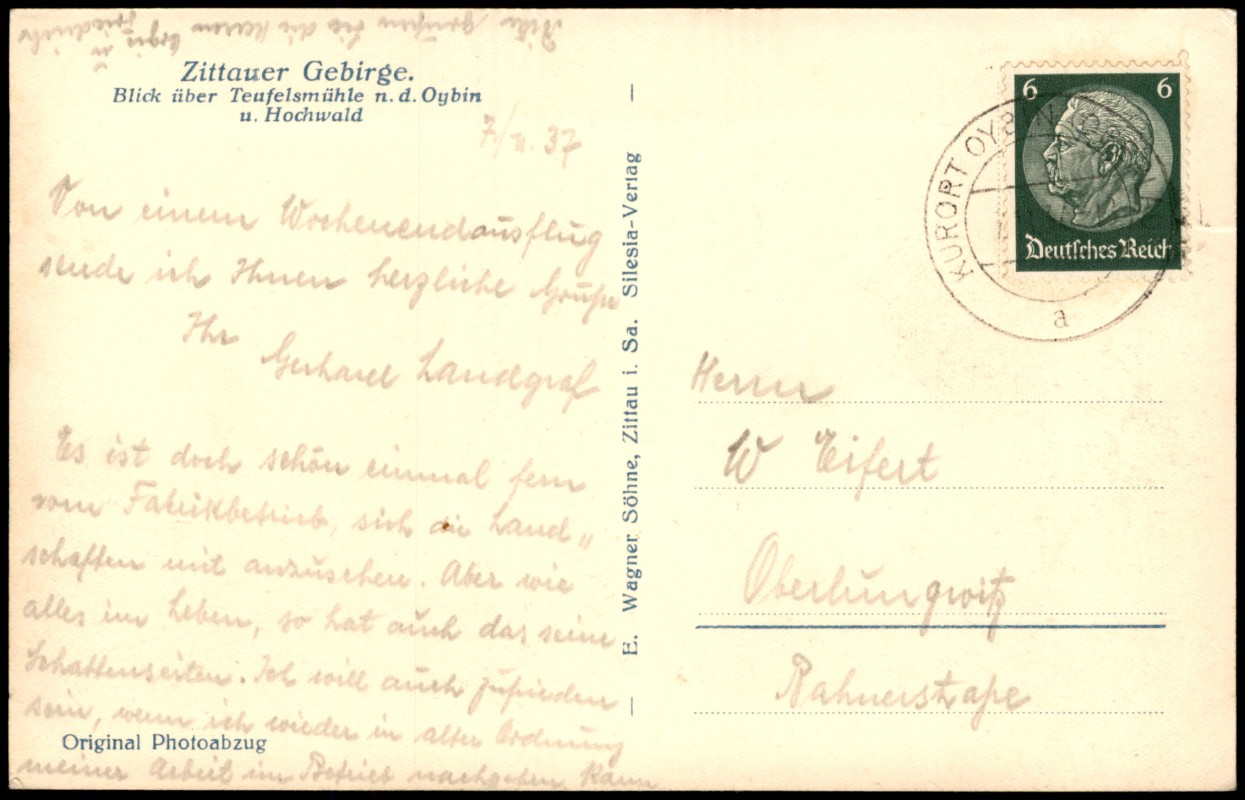 Bitte grüßen Sie die Herren
u. Friedrich
Zittauer Gebirge.
Blick über Teufelsmühle n. d. Oybin
u. Hochwald
7/11. 37
Von einem Wochenendausflug
sende ich Ihnen herzliche Grüße
Ihr
Gerhard Landgraf
Es ist doch schön einmal fern
vom Fabrikbetrieb, sich die Land„
schaften mit anzusehen. Aber wie
alles im Leben, so hat auch das seine
Schattenseiten. Ich will auch zufrieden
sein, wenn ich wieder in alter Ordnung
meiner Arbeit im Betrieb nachgehen kann
Original Photoabzug
E. Wagner Söhne, Zittau i. Sa. Silesia-Verlag
6 6
Deutsches Reich
KURORT OYBIN
a
Herrn
W Eifert
Oberlungwitz
Rahnerstraße